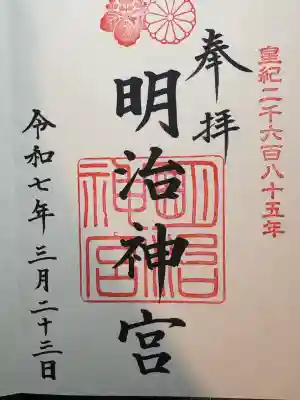 皇紀二千六百八十五年
奉拝
明治神宮
明治神宮
令和七年三月二十三日